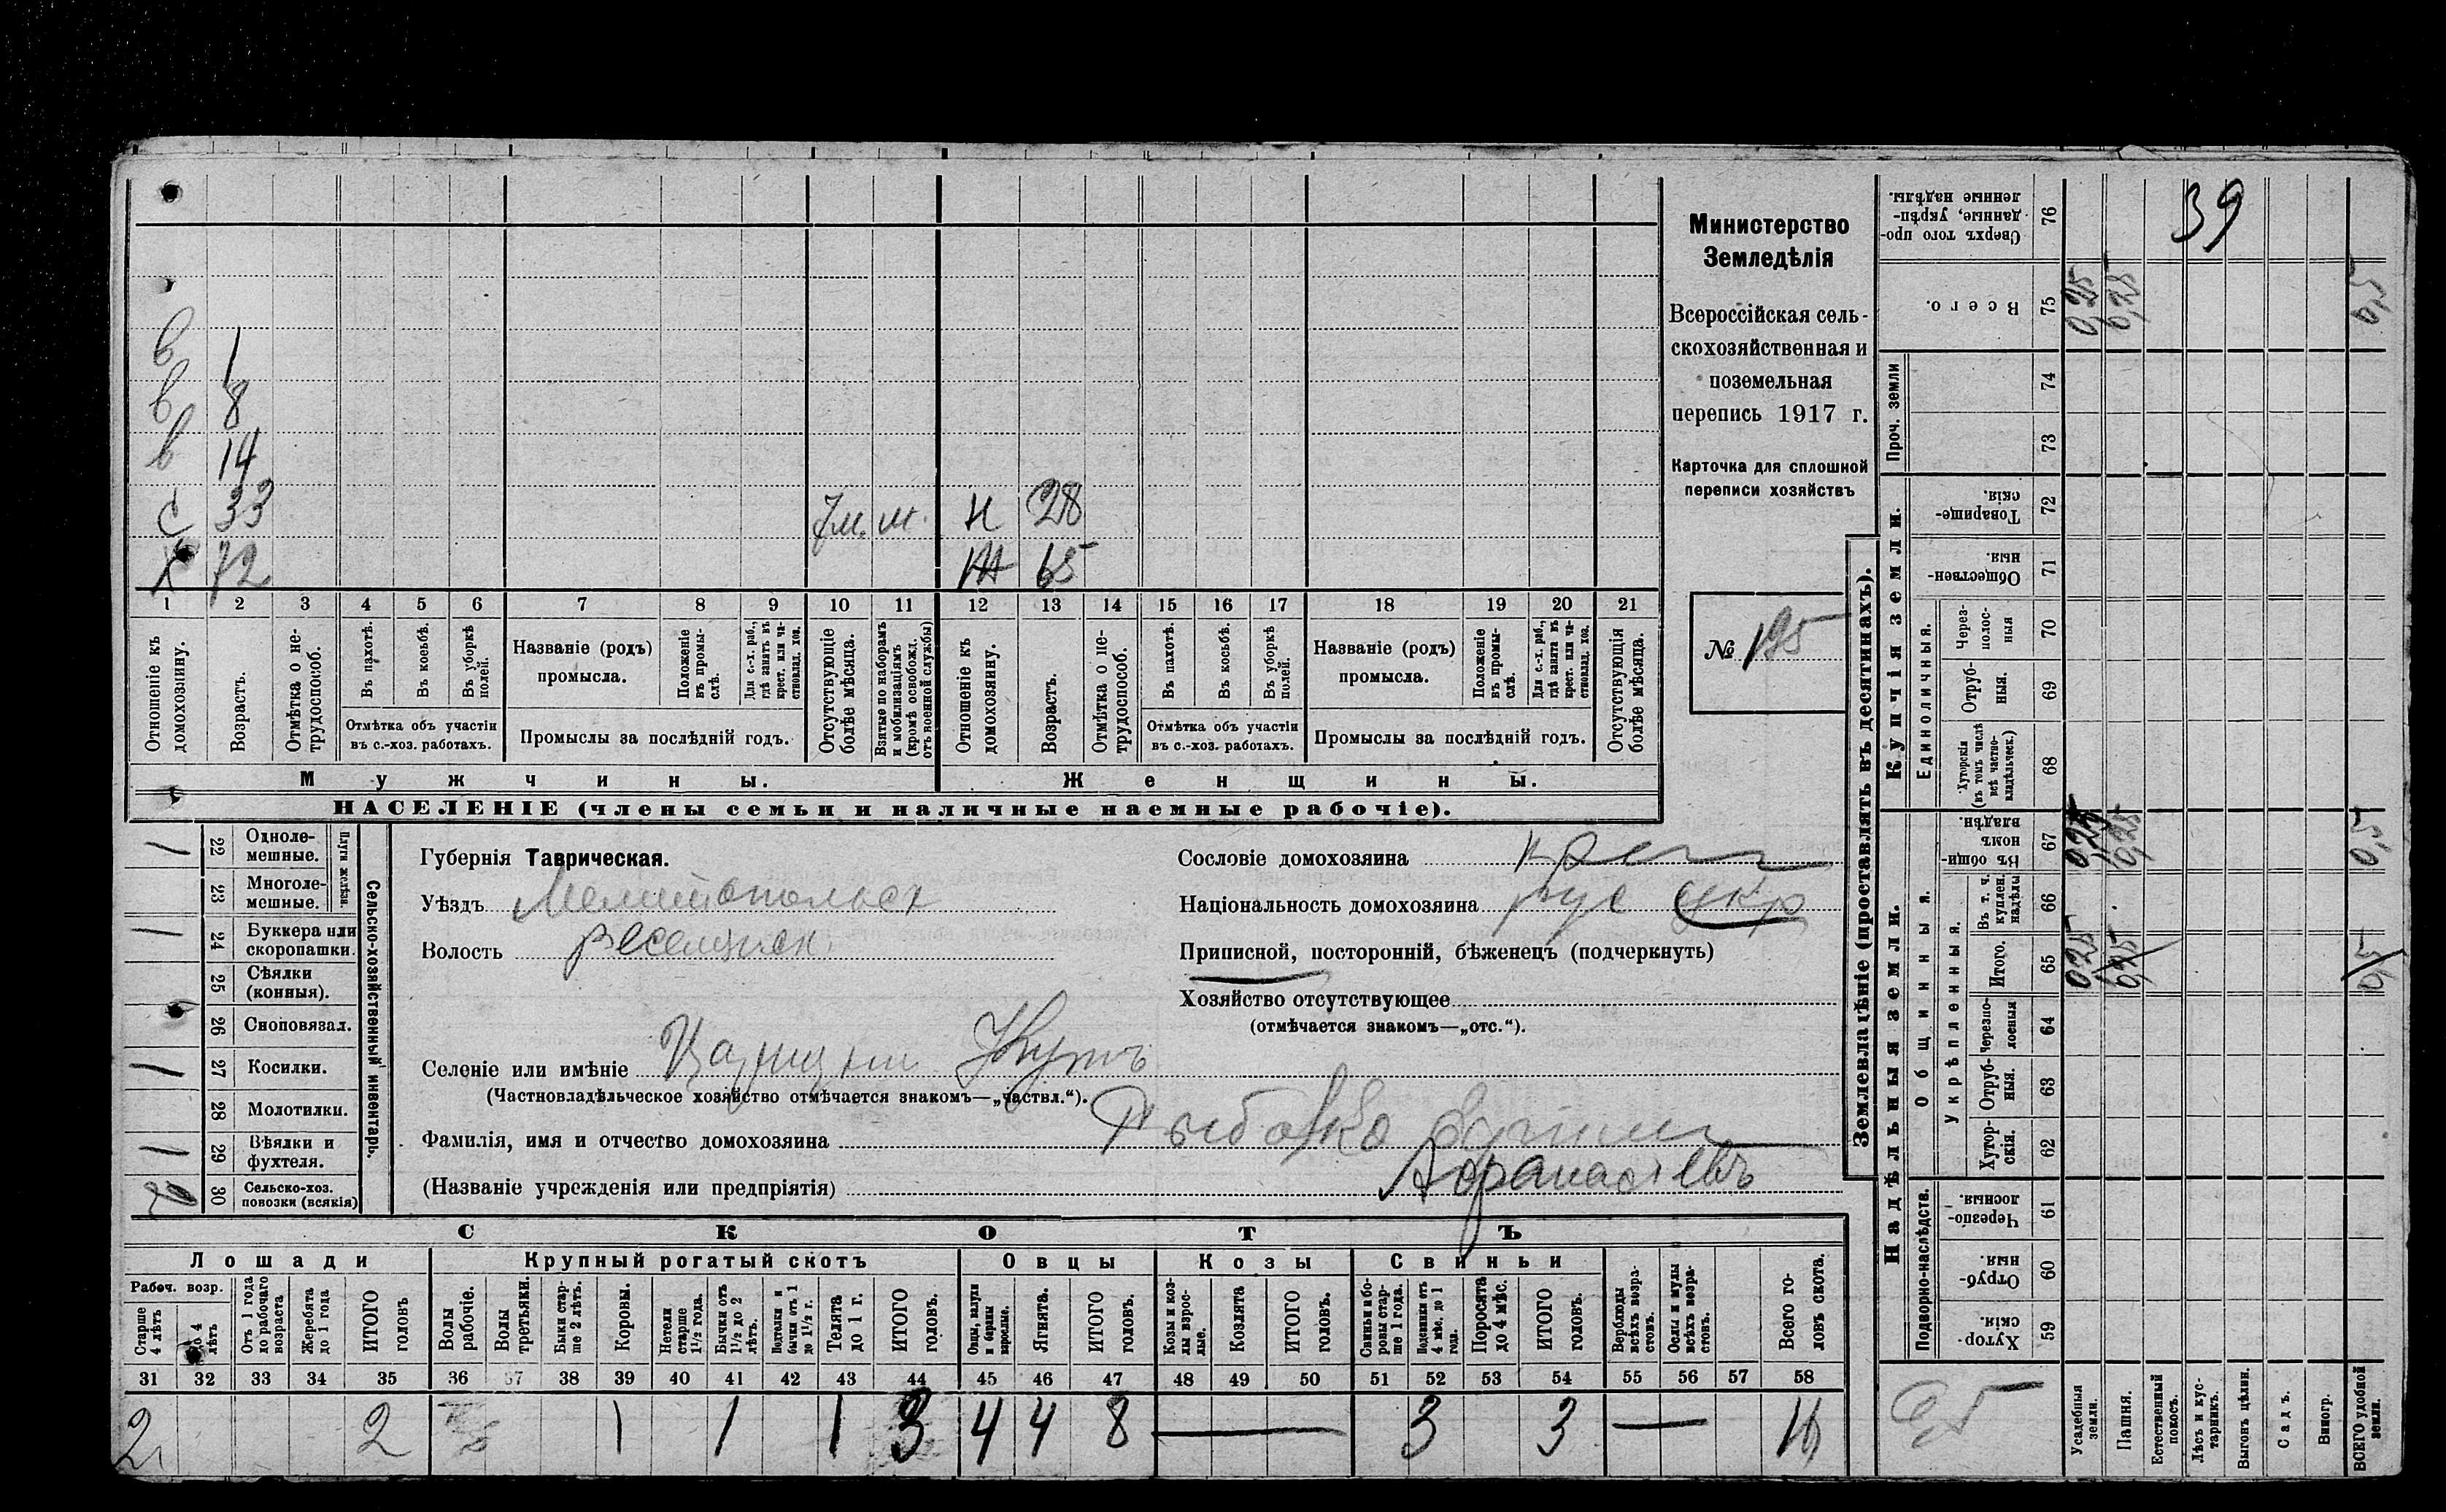 39
Министерство
Земледѣлія
Всероссійская сель-
скохозяйственная и
поземельная
перепись 1917 г.
Карточка для сплошной
переписи хозяйствъ
№ 195
в 1
в 8
в 14
с 33 7м. м. н 28
х 72 ж 65
1 2 3 4 5 6 7 8 9 10 11 12 13 14 15 16 17 18 19 20 21
Отношеніе къ домохозяину.
Возрастъ.
Отмѣтка о не-трудоспособ.
Въ пахотѣ.
Въ косьбѣ.
Въ уборкѣ полей.
Отмѣтка объ участіи
въ с.-хоз. работахъ.
Названіе (родъ)
промысла.
Положеніе въ промы-слѣ.
Для с.-х. раб., гдѣ занятъ въ крест. или ча-стновлад. хоз.
Промыслы за послѣдній годъ.
Отсутствующіе болѣе мѣсяца.
Взятые по наборамъ и мобилизаціямъ (кромѣ освобожд. отъ военной службы)
Отношеніе къ домохозяину.
Возрастъ.
Отмѣтка о не-трудоспособ.
Въ пахотѣ.
Въ косьбѣ.
Въ уборкѣ полей.
Отмѣтка объ участіи
въ с.-хоз. работахъ.
Названіе (родъ)
промысла.
Положеніе въ промы-слѣ.
Для с.-х. раб., гдѣ занята въ крест. или ча-стновлад. хоз.
Промыслы за послѣдній годъ.
Отсутствующія болѣе мѣсяца.
Мужчины. Женщины.
НАСЕЛЕНІЕ (члены семьи и наличные наемные рабочіе).
Сельско-хозяйственный инвентарь.
Плуги желѣзн.
1 22 Одноле-мешные.
23 Многоле-мешные.
1 24 Буккера или скоропашки.
25 Сѣялки (конныя).
26 Сноповязал.
1 27 Косилки.
28 Молотилки.
1 29 Вѣялки и фухтеля.
30 Сельско-хоз. повозки (всякія)
Губернія Таврическая.
Уѣздъ Мелитопольск
Волость Веселянск.
Селеніе или имѣніе Царицын Кутъ
(Частновладѣльческое хозяйство отмѣчается знакомъ—„частвл.“).
Фамилія, имя и отчество домохозяина Рыбалко
(Названіе учрежденія или предпріятія) Афанасіевъ
Сословіе домохозяина крест
Національность домохозяина рус укр
Приписной, посторонній, бѣженецъ (подчеркнуть)
Хозяйство отсутствующее
(отмѣчается знакомъ—„отс.“).
СКОТЪ
Лошади Крупный рогатый скотъ Овцы Козы Свиньи
Рабоч. возр.
Старше 4 лѣтъ
До 4 лѣтъ
Отъ 1 года до рабочаго возраста
Жеребята до 1 года
ИТОГО головъ
Волы рабочіе.
Волы третьяки.
Быки стар-ше 2 лѣтъ.
Коровы.
Нетели старше 1½ года.
Бычки отъ 1½ до 2 лѣтъ.
Подтелки и бычки отъ 1 до 1½ г.
Телята до 1 г.
ИТОГО головъ.
Овцы, валухи и бараны взрослые.
Ягнята.
ИТОГО головъ.
Козы и коз-лы взрос-лые.
Козлята
ИТОГО головъ.
Свиньи и бо-ровы стар-ше 1 года.
Подсвинки отъ 4 мѣс. до 1 года.
Поросята до 4 мѣс.
ИТОГО головъ.
Верблюды всѣхъ возра-стовъ.
Ослы и мулы всѣхъ возра-стовъ.
Всего го-ловъ скота.
31 32 33 34 35 36 37 38 39 40 41 42 43 44 45 46 47 48 49 50 51 52 53 54 55 56 57 58
2 2 1 1 1 3 4 4 8 — 3 3 — 16
Землевладѣніе (проставлять въ десятинахъ).
Сверхъ того про-данные, укрѣп-ленные надѣлы. 76
Всего. 75 0,25 0,25 0,5
Проч. земли 74
73
Купчія земли.
Товарище-скія. 72
Обществен-ныя. 71
Единоличныя.
Через-полос-ныя 70
Отруб-ныя. 69
Хуторскія (въ томъ числѣ всѣ частно-владѣльческ.) 68
Надѣльныя земли.
Общинныя.
Въ общин-номъ владѣн. 67 0,25 0,25 0,5
Укрѣпленныя.
Въ т. ч. куплен. надѣлы 66
Итого. 65 0,25 0,25 0,5
Черезпо-лосныя 64
Отруб-ныя. 63
Хутор-скія. 62
Подворно-наслѣдств.
Черезпо-лосныя. 61
Отруб-ныя. 60
Хутор-скія. 59
0,5
Усадебныя земли.
Пашня.
Естественный покосъ.
Лѣсъ и кус-тарникъ.
Выгонъ цѣлин.
Садъ.
Виногр.
ВСЕГО удобной земли.